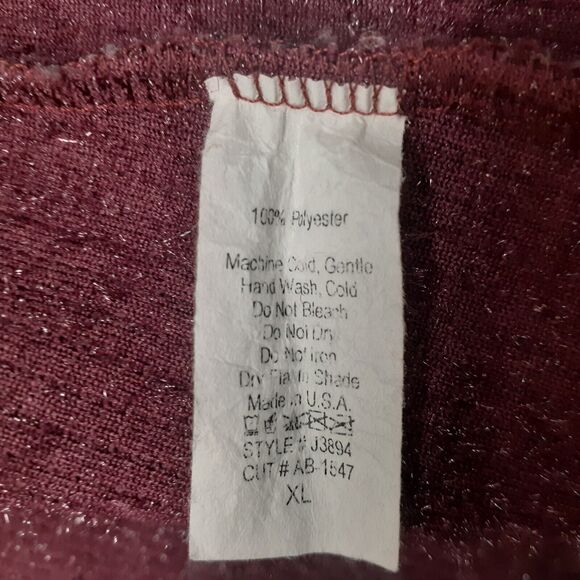 100% Polyester
Machine Cold, Gentle
Hand Wash, Cold
Do Not Bleach
Do Not Dry
Do Not Iron
Dry Flat in Shade
Made in U.S.A.
STYLE # J3894
CUT # AB-1547
XL